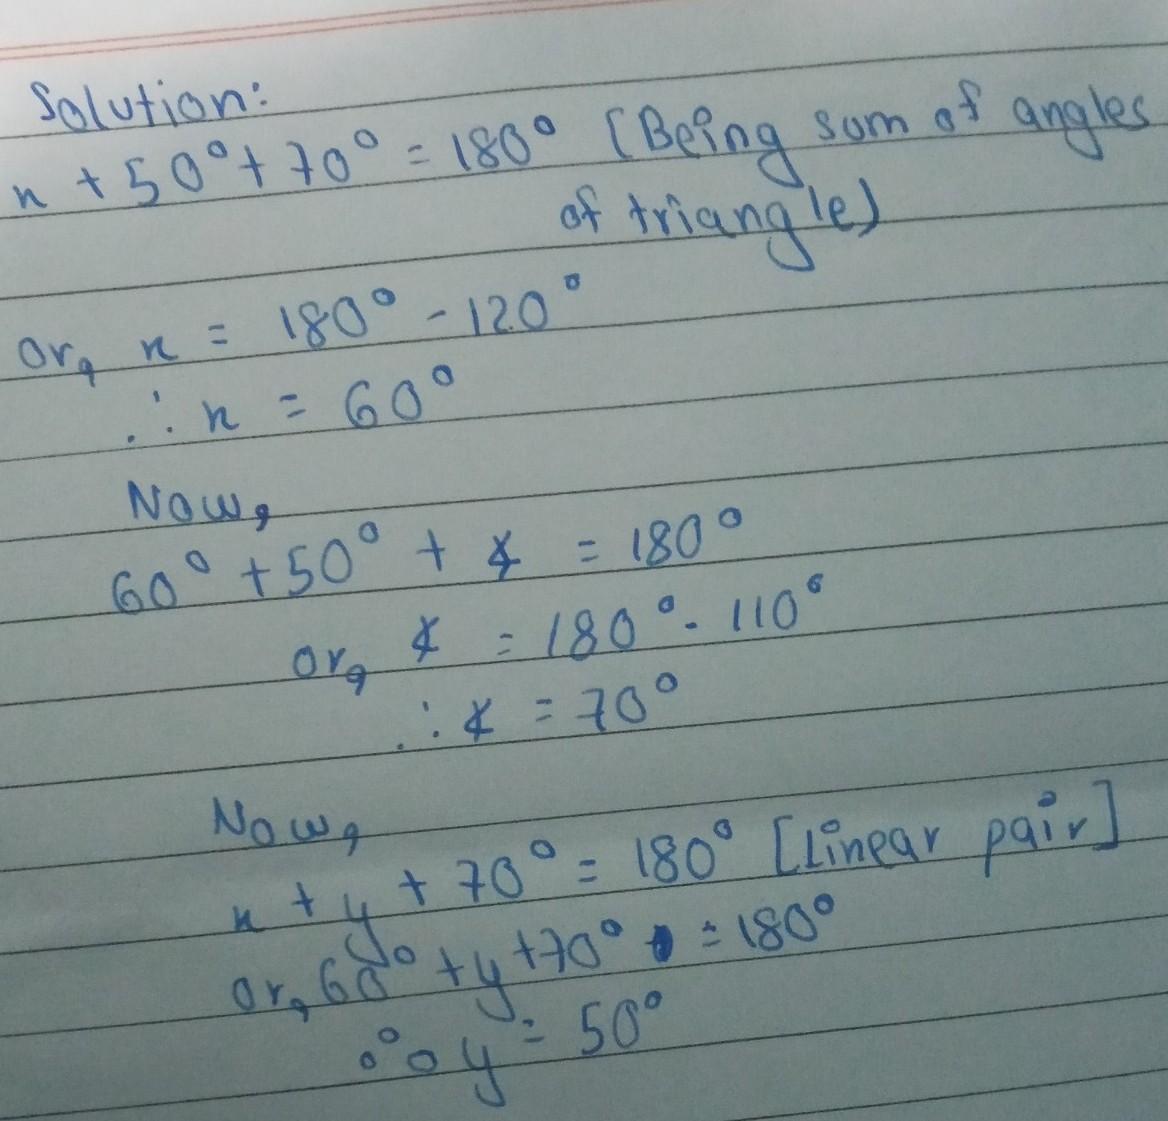 Solution:
x + 50° + 70° = 180° [Being sum of angles
of triangle)
or, x = 180° - 120°
∴ x = 60°
Now,
60° + 50° + ∡ = 180°
or, ∡ = 180° - 110°
∴ ∡ = 70°
Now,
x + y + 70° = 180° [Linear pair]
or, 60° + y + 70° = 180°
∴ y = 50°